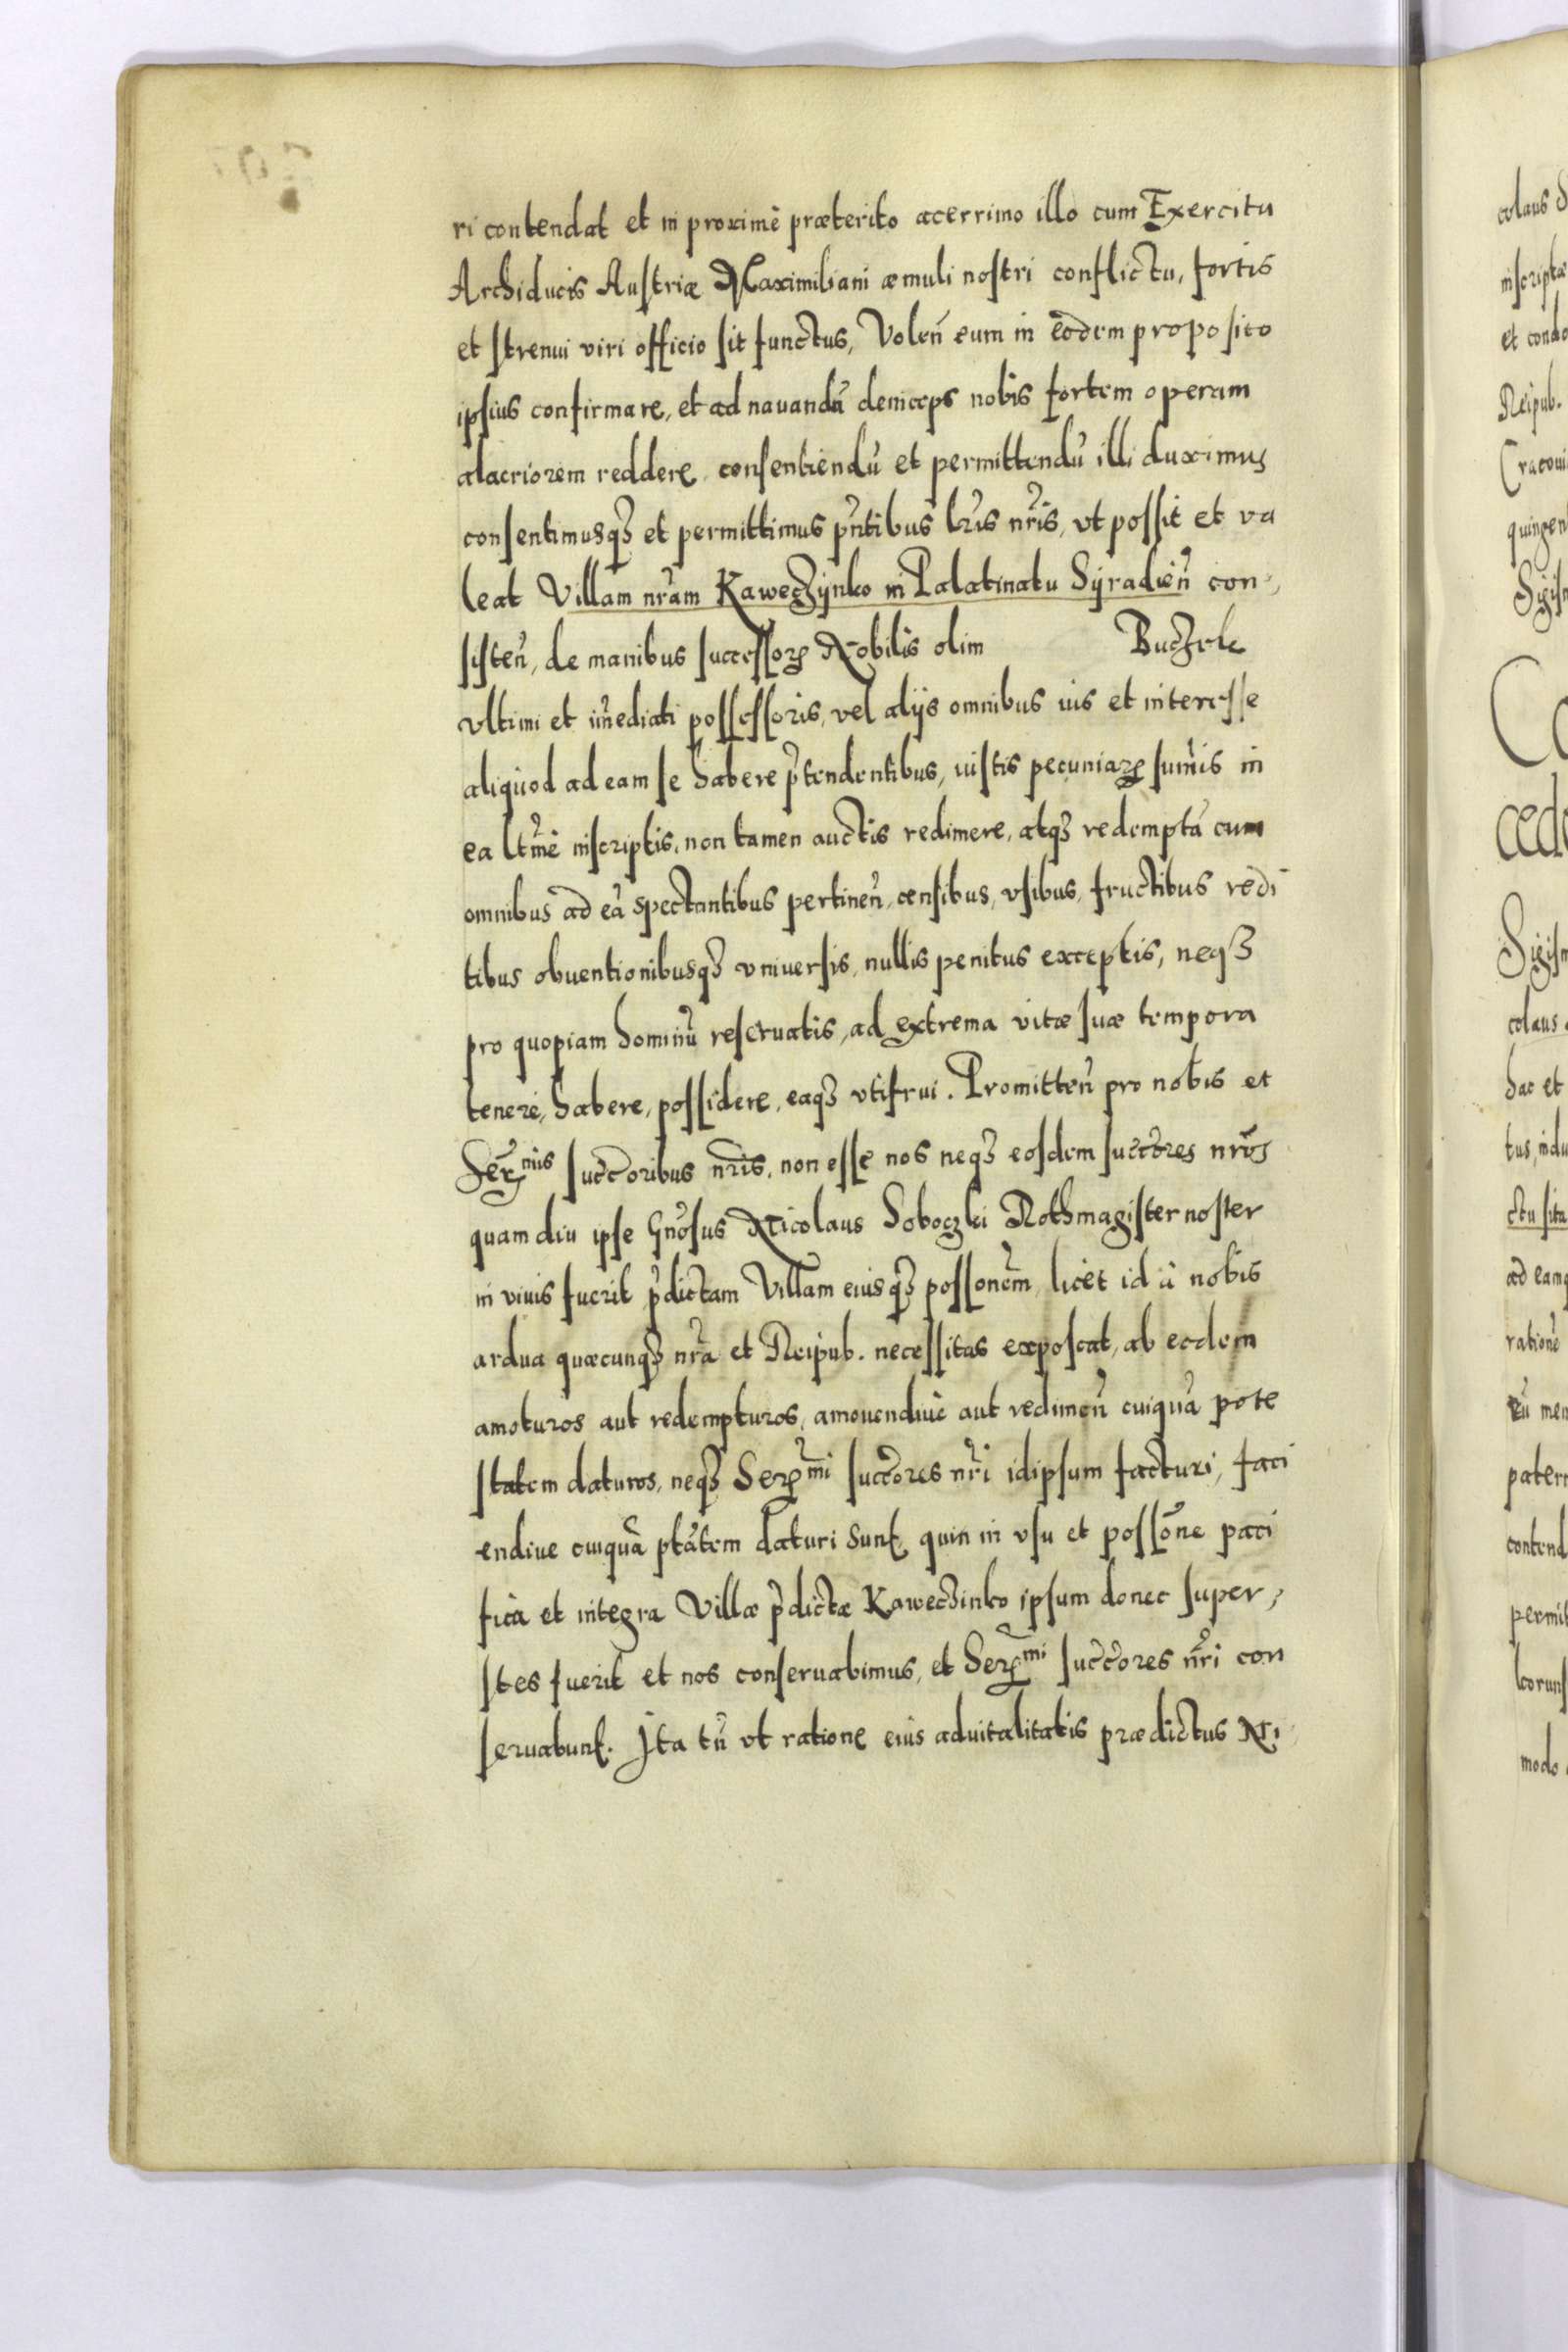 ri contendat et in proximè præterito acerrimo illo cum Exercitu
Archiducis Austriæ Maximiliani æmuli nostri conflictu, fortis
et strenui viri officio sit functus, Volen̄ eum in eodem proposito
ipsius confirmare, et ad nauandū deinceps nobis fortem operam
alacriorem reddere, consentiendū et permittendū illi duximus
consentimusqꝫ et permittimus pn̄tibus lr̄is nr̄is, vt possit et va
leat Villam nr̄am Kaweczÿnko in Palatinatu Sÿradien̄ con-,
sisten̄, de manibus successoꝝ Nobilis olim Buczek
vltimi et im̄ediati possessoris, vel alijs omnibus ius et interesse
aliquod ad eam se habere p̄tendentibus, iustis pecuniaꝝ sum̄is in
ea ltm̄è inscriptis, non tamen auctis redimere, atqꝫ redemptā cum
omnibus ad eā spectantibus pertinen̄, censibus, vsibus, fructibus redi
tibus obuentionibusqꝫ vniuersis, nullis penitus exceptis, neqꝫ
pro quopiam hominū reseruatis, ad extrema vitæ suæ tempora
tenere, habere, possidere, eaqꝫ vtifrui. Promitten̄ pro nobis et
Serꝫ̄mis succoribus nr̄is, non esse nos neqꝫ eosdem succores nr̄os
quam diu ipse Gn̄osus Nicolaus Soboczki Rothmagister noster
in viuis fuerit p̄dictam Villam eiusqꝫ possonem̄, licet id à nobis
ardua quæcunqꝫ nr̄a et Reipub. necessitas exposcat, ab eodem
amoturos aut redempturos, amouendiuè aut redimen̄ cuiquā pote
statem daturos, neqꝫ Serꝫ̄mi succores nr̄i idipsum facturi, faci
endiue cuiquā ptātem daturi sunt, quin in vsu et possōne paci
fica et integra Villæ p̄dictæ Kaweczinko ipsum donec super-,
stes fuerit et nos conseruabimus, et Serꝫ̄mi succores nr̄i con
seruabunt. Ita tn̄ vt ratione eius aduitalitatis prædictus Ni-
colaus
inscriptæ
et condo
Reipub.
Cracoui
quingen
Sigism
Co
cede
Sigism
colaus
hac et
tus, indu
ctu situ
ad eamq
rationē
eū men
patern
contend
permit
modo